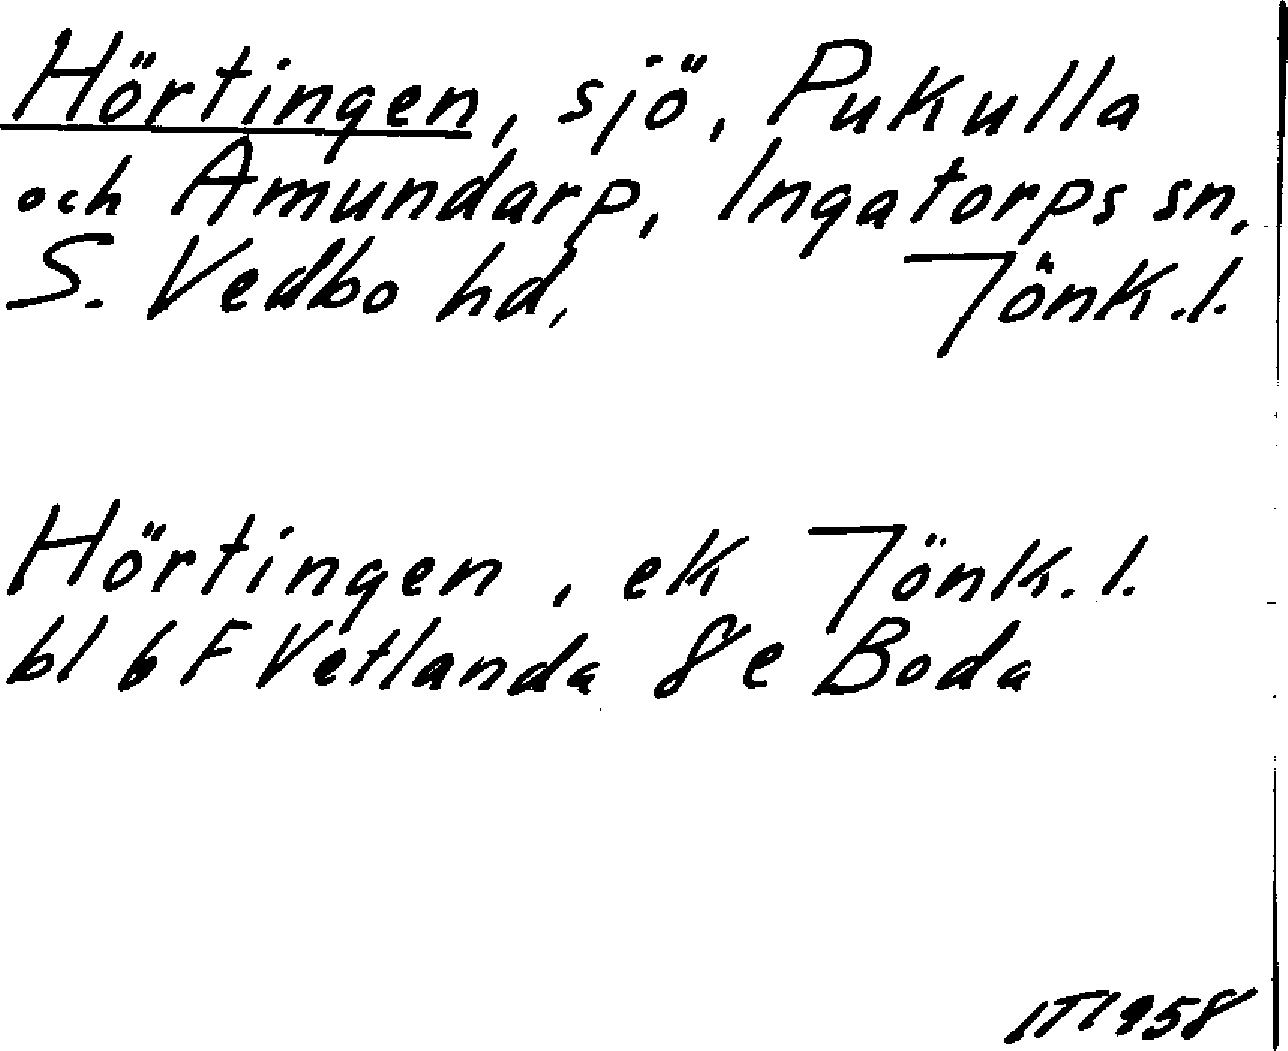 Hörtingen, sjö, Pukulla
och Amundarp, Ingatorps sn,
S. Vedbo hd, Jönk.l.
Hörtingen, ek Jönk.l.
bl 6 F Vetlanda 8e Boda
IT1958